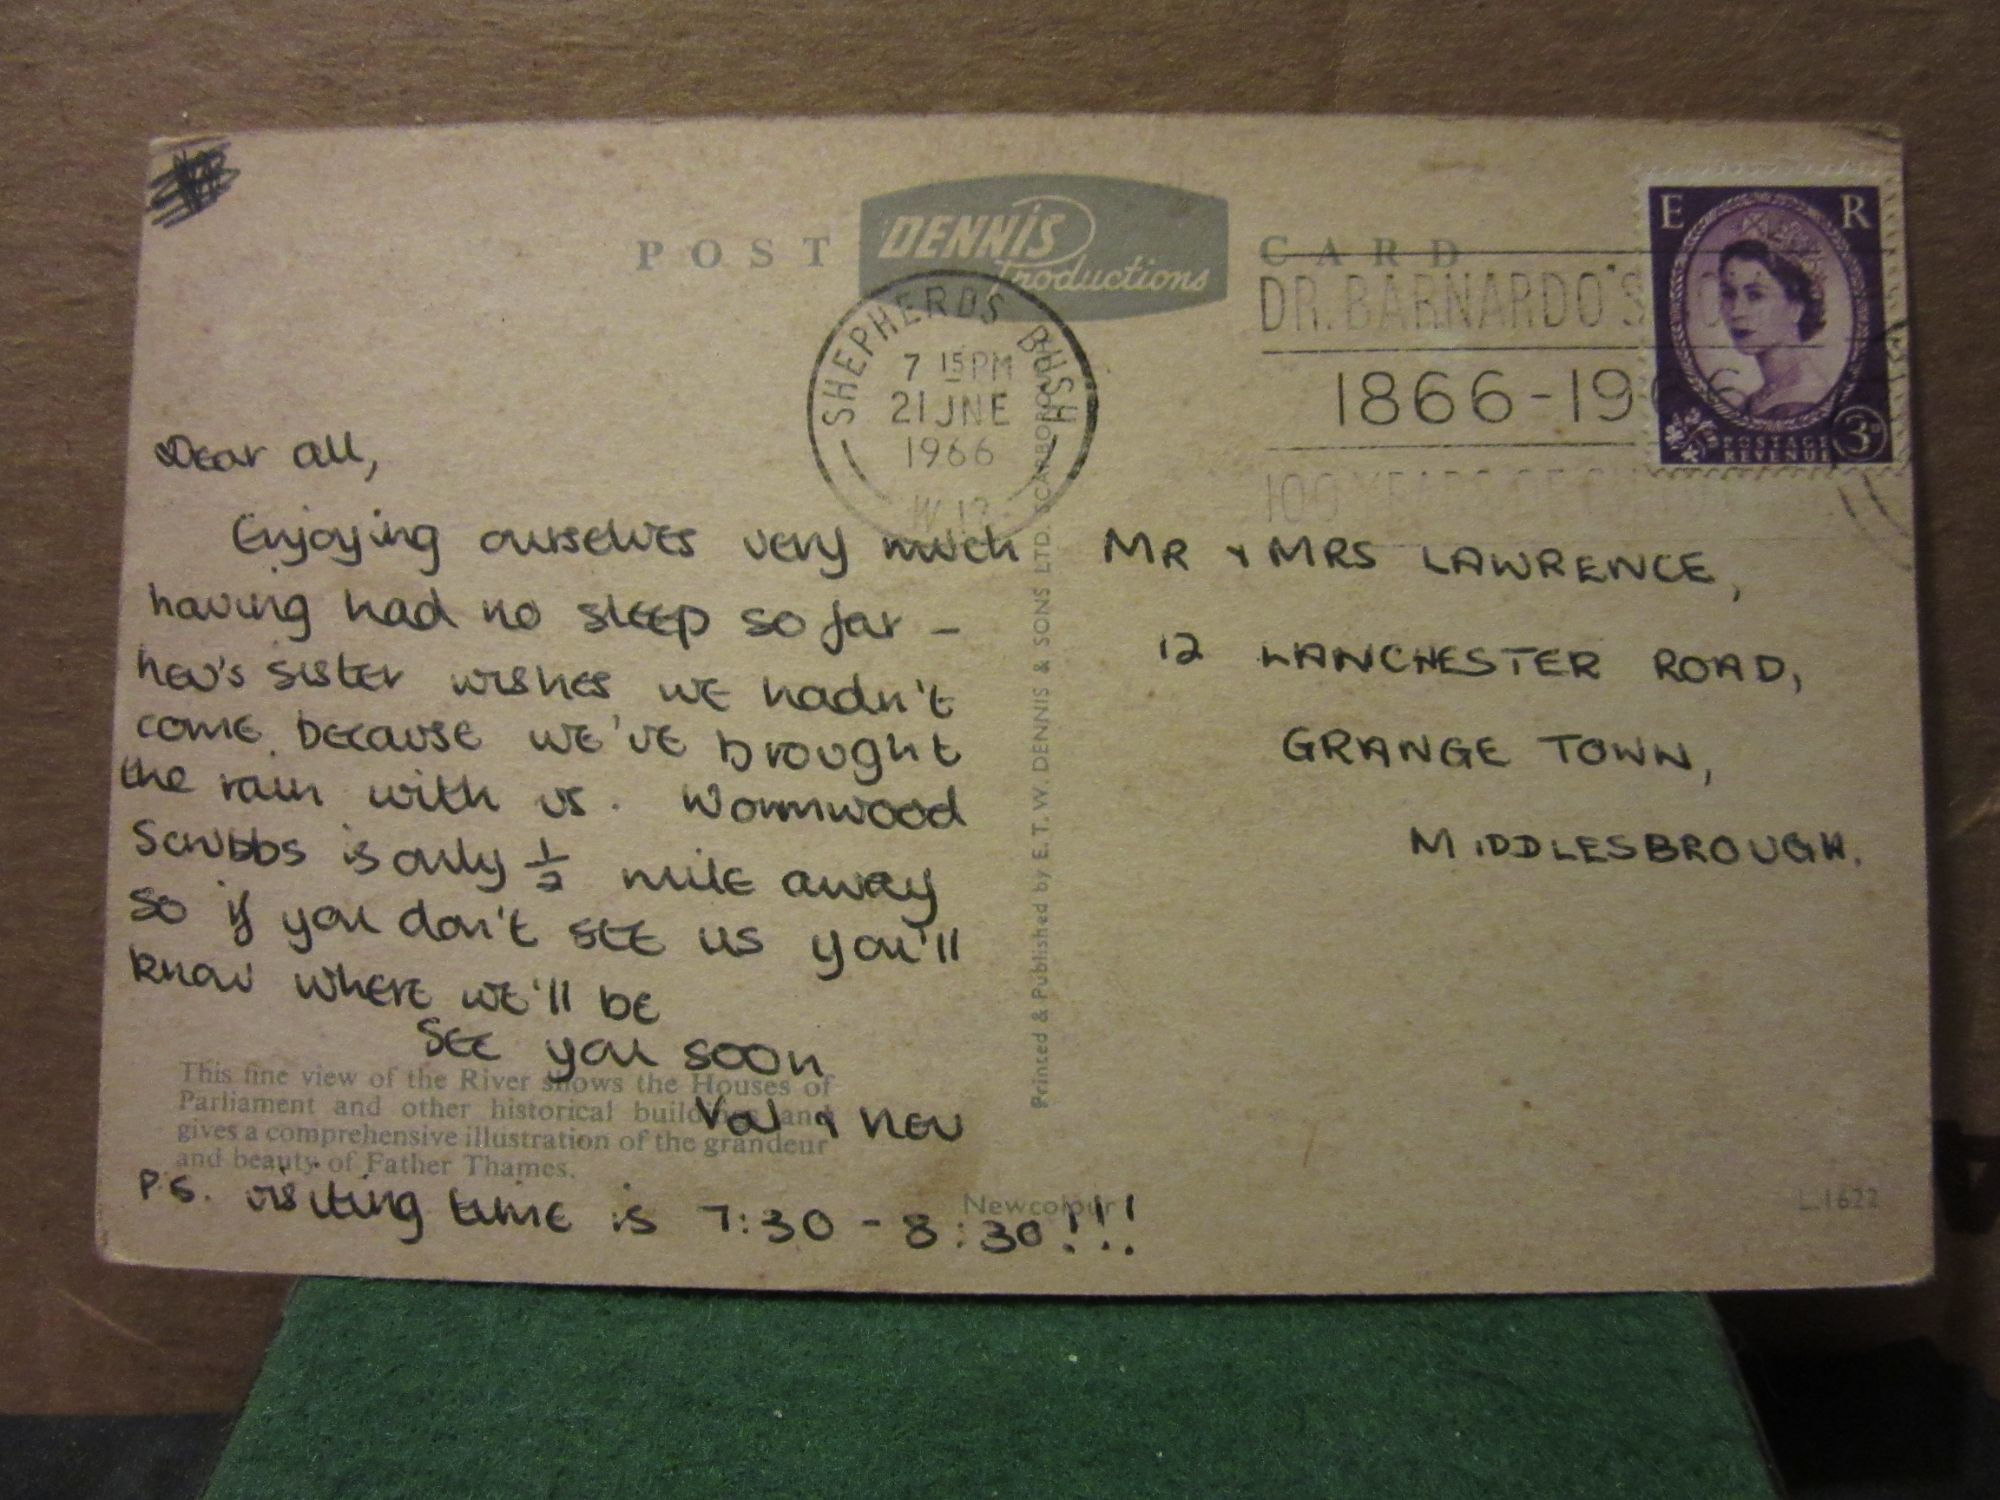 POST CARD
DENNIS
Productions
SHEPHERDS BUSH
7 15 PM
21 JNE
1966
W.12
DR. BARNARDO'S
1866-1966
100 YEARS OF
E R
POSTAGE
REVENUE
3D
Dear all,
Enjoying ourselves very much
having had no sleep so far -
nev's sister wishes we hadn't
come because we've brought
the rain with us. Wormwood
Scrubbs is only 1/2 mile away
so if you don't see us you'll
know where we'll be
See you soon
Val & nev
P.S. visiting time is 7:30 - 8:30!!!
This fine view of the River shows the Houses of
Parliament and other historical buildings and
gives a comprehensive illustration of the grandeur
and beauty of Father Thames.
Printed & Published by E. T. W. DENNIS & SONS LTD. SCARBOROUGH
MR & MRS LAWRENCE,
12 LANCHESTER ROAD,
GRANGE TOWN,
MIDDLESBROUGH.
Newcolour
L.1622